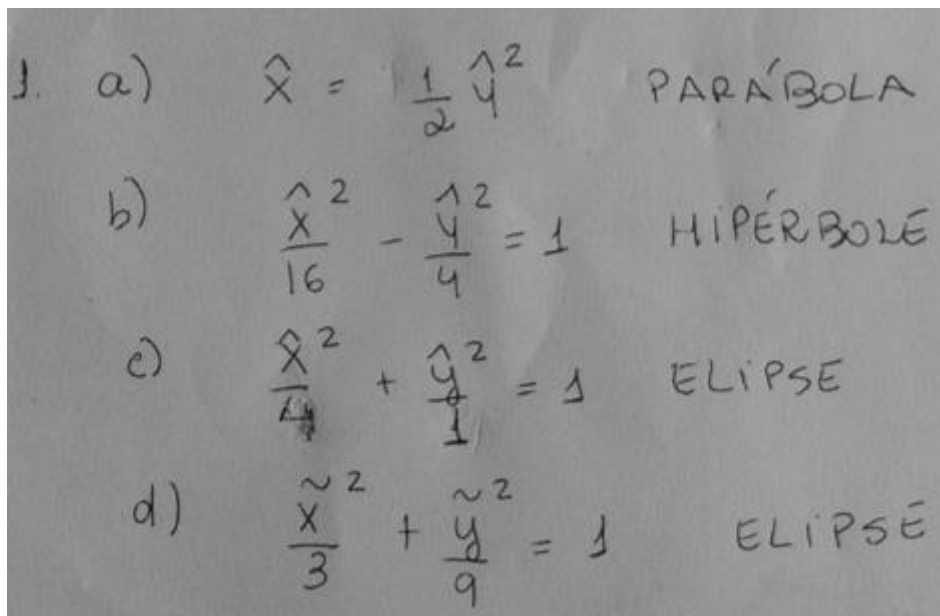 1. a) x̂ = 1/2 ŷ² PARÁBOLA
b) x̂²/16 - ŷ²/4 = 1 HIPÉRBOLE
c) x̂²/4 + ŷ²/1 = 1 ELIPSE
d) x̃²/3 + ỹ²/9 = 1 ELIPSE